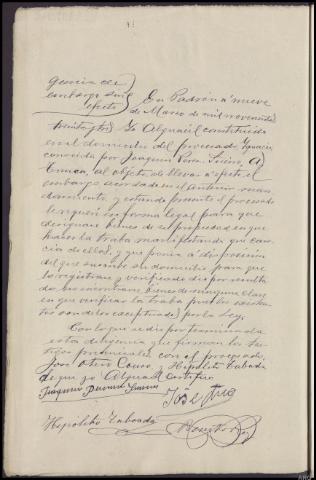 embargo sin
efecto
En Padrón á nueve
de Marzo de mil novecientos
treinta y tres Yo Alguacil constituido
en el domicilio del procesado Ignacio
conocido por Joaquin
al objeto de llevar a efecto el
embargo acordado en el anterior man
damiento, y estando presente el procesado
le requerí en forma legal para que
designase bienes de su propiedad en que
hacer la traba manifestando que care
cia de ellos, y que ponia á disposicion
del que suscribe su domicilio para que
lo registrase y verificado dio por resulta
do no encontrarse bienes de ninguna clase
en que verificar la traba pues los existentes
son de los exceptuados por la Ley,
Con lo que se dio por terminada
esta diligencia que firman los tes
tigos presenciales con el procesado,
José Otero Couso, Hipólito Taboada
de que yo Alguacil certifico
Joaquin
José Otero
Hipolito Taboada